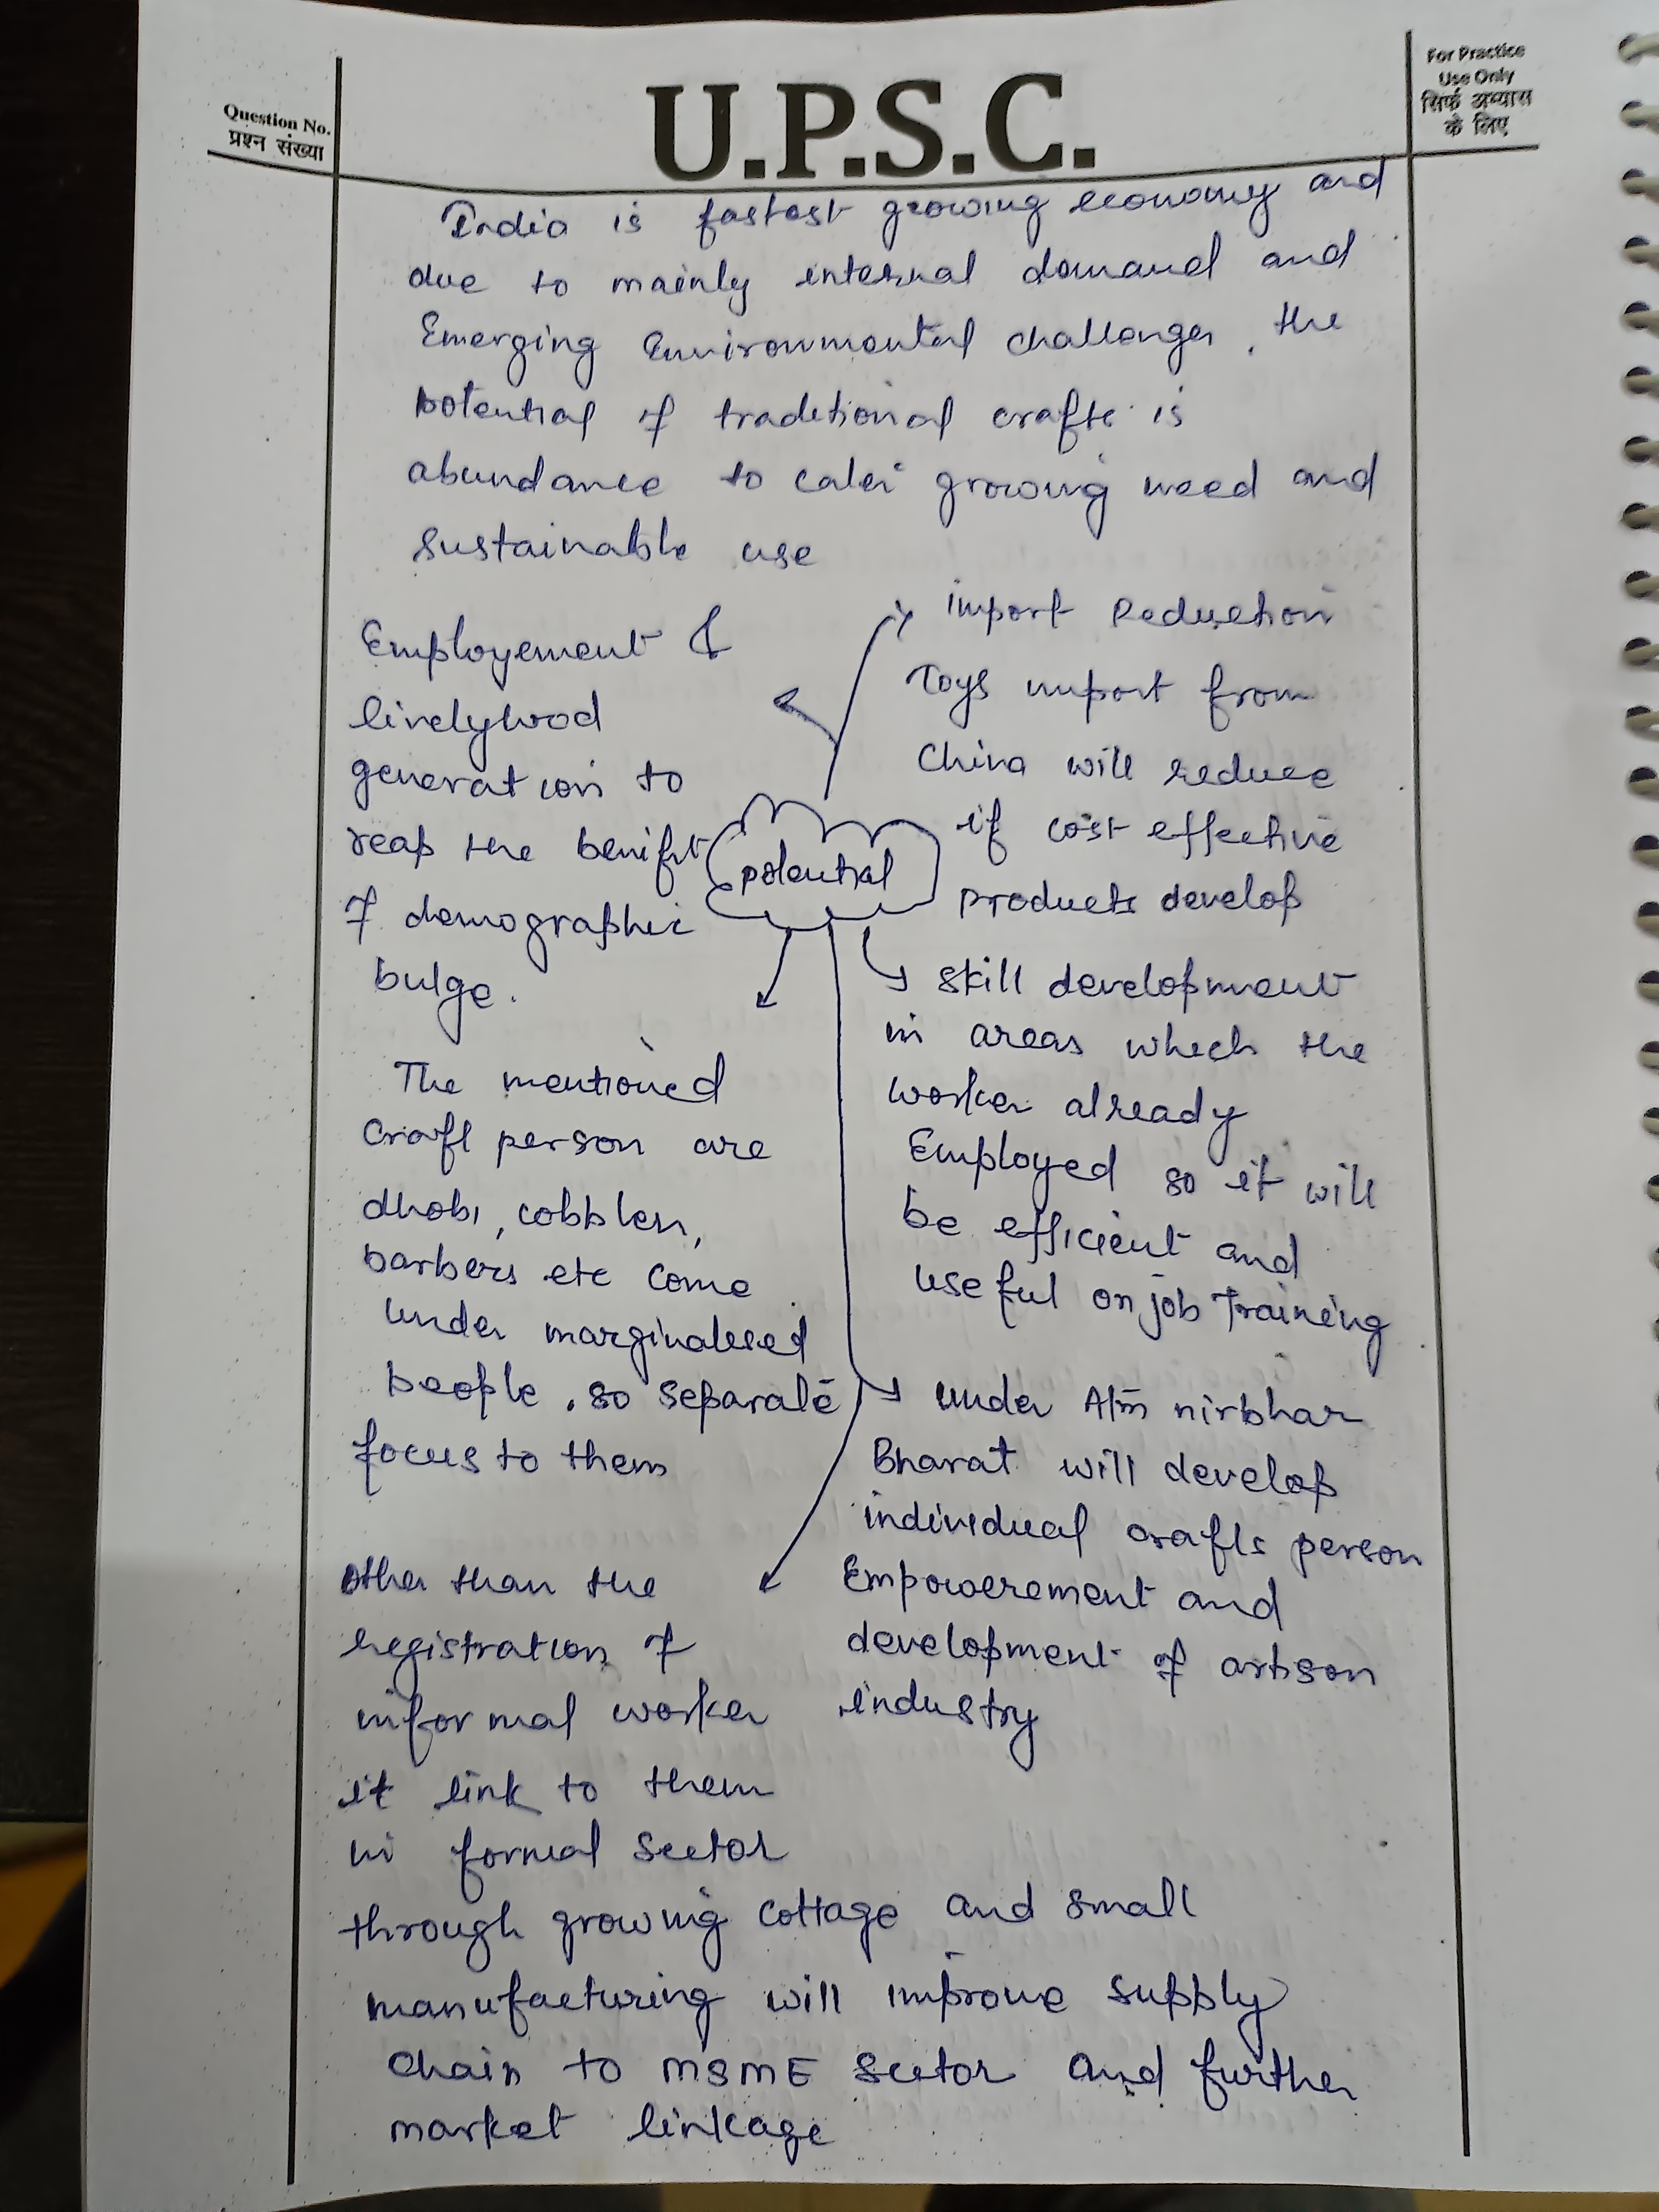 Question No.
प्रश्न संख्या
U.P.S.C.
For Practice
Use Only
सिर्फ अभ्यास
के लिए
India is fastest growing economy and
due to mainly internal demand and
Emerging Environmental challenges, the
potential of traditional crafts is
abundance to cater growing need and
sustainable use
Employement &
livelyhood
generation to
reap the benifit
of demographic
bulge.
import Reduction
Toys import from
China will reduce
if cost effective
products develop
potential
skill development
in areas which the
worker already
Employed so it will
be efficient and
useful on job Training
The mentioned
craft person are
dhobi, cobbler,
barbers etc come
under marginalised
people. so separate
focus to them
under Atm nirbhar
Bharat will develop
individual crafts person
Empowerement and
development of artison
industry
other than the
registration of
informal worker
it link to them
in formal sector
through growing cottage and small
manufacturing will improve supply
chain to MSME sector and further
market linkage